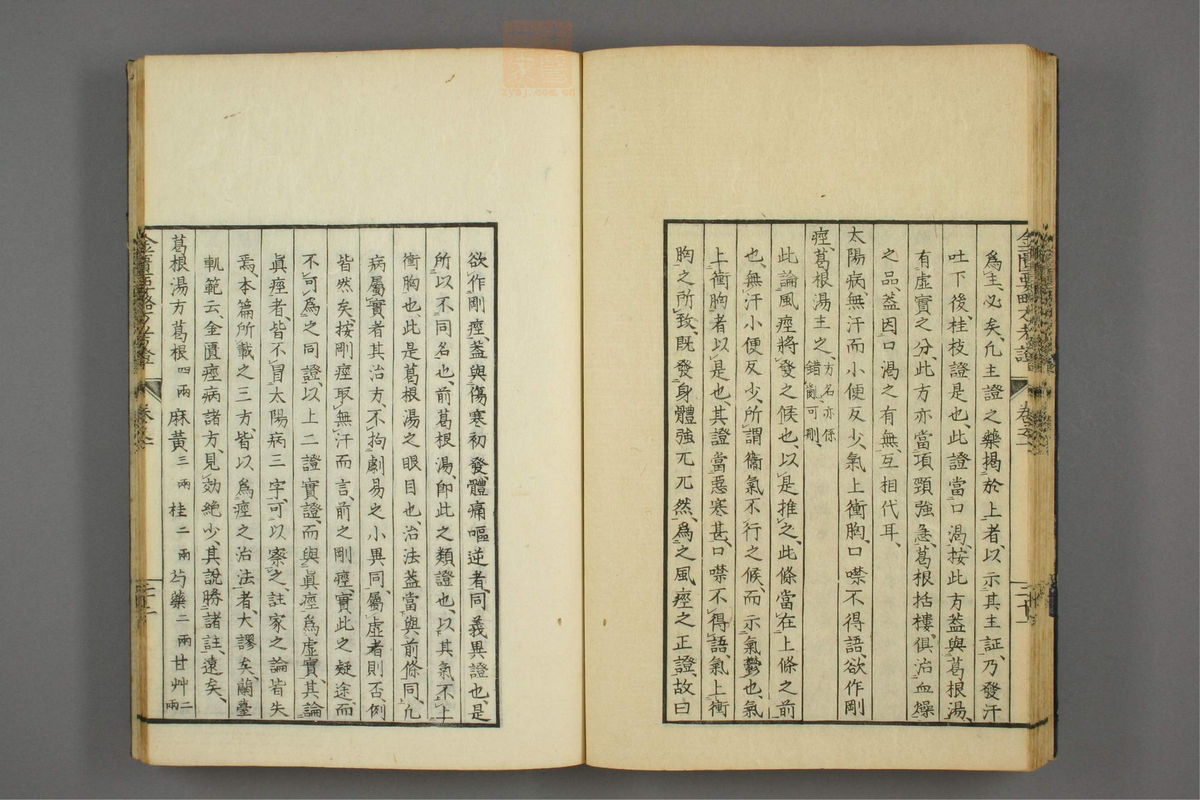 爲主、必矣、凡主證之藥、揭於上者、以示其主証、乃發汗
吐下後、桂枝證是也、此證當口渴、按此方蓋與葛根湯、
有虛實之分、此方亦當項頸強急、葛根括樓、俱治血燥
之品、蓋因口渴之有無、互相代耳、
太陽病無汗而小便反少、氣上衝胸、口噤不得語、欲作剛
痙、葛根湯主之、方名亦係
錯簡可刪、
此論風痙將發之候也、以是推之、此條當在上條之前
也、無汗小便反少、所謂衞氣不行之候、而示氣鬱也、氣
上衝胸者以是也、其證當惡寒甚、口噤不得語、氣上衝
胸之所致、既發身體強兀兀然、爲之風痙之正證、故曰
欲作剛痙、蓋與傷寒初發、體痛嘔逆者、同義異證也、是
所以不同名也、前葛根湯、卽此之類證也、以其氣不上
衝胸也、此是葛根湯之眼目也、治法蓋當與前條同、凡
病屬實者其治方、不拘劇易之小異同、屬虛者則否、例
皆然矣、按剛痙取無汗而言、前之剛痙、實此之疑途而
不可爲之同證、以上二證實證、而與眞痙爲虛實、其論
眞痙者、皆不冒太陽病三字、可以察之、註家之論皆失
焉、本篇所載之三方、皆以爲痙之治法者、大謬矣、蘭臺
軌範云、金匱痙病諸方、見効絶少、其說勝諸註、遠矣、
葛根湯方葛根四兩麻黃三兩桂二兩芍藥二兩甘艸二
兩
金匱要略方考證
卷之